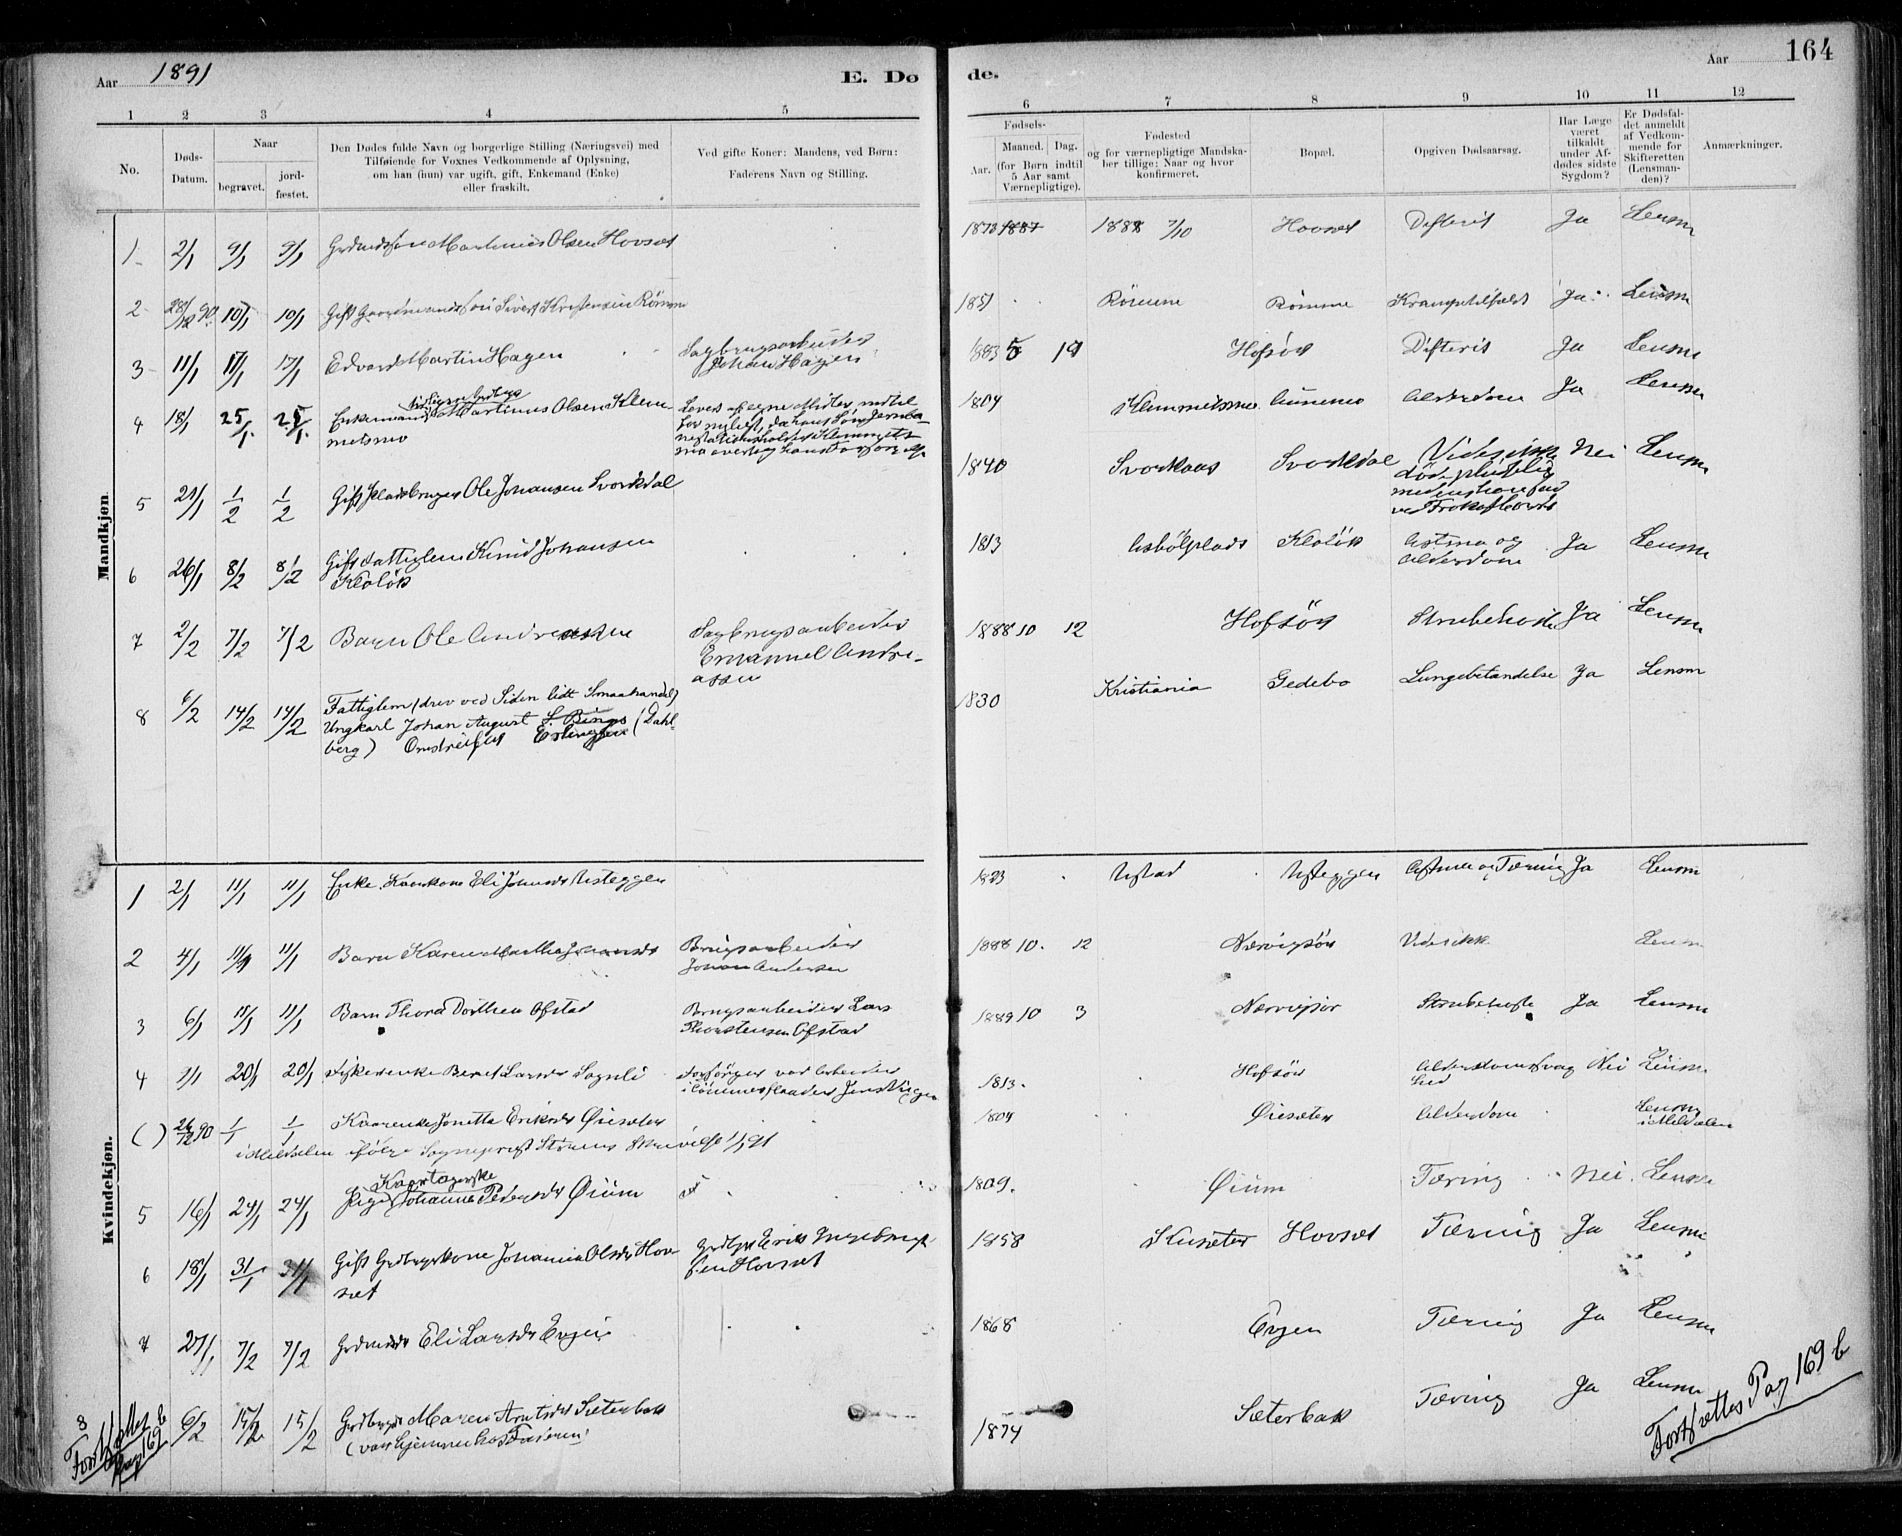 Aar 1891
E. Dø
de.
Aar 164
1 2 3 4 5 6 7 8 9 10 11 12
No.
Døds-Datum.
Naar
begravet.
jord-fæstet.
Den Dødes fulde Navn og borgerlige Stilling (Næringsvei) med
Tilføiende for Voxnes Vedkommende af Oplysning,
om han (hun) var ugift, gift, Enkemand (Enke)
eller fraskilt.
Ved gifte Koner: Mandens, ved Børn:
Faderens Navn og Stilling.
Fødsels-
Aar.
Maaned. Dag.
(for Børn indtil
5 Aar samt
Værnepligtige).
Fødested
og for værnepligtige Mandska-
ber tillige: Naar og hvor
konfirmeret.
Bopæl.
Opgiven Dødsaarsag.
Har Læge
været
tilkaldt
under Af-
dødes sidste
Sygdom?
Er Dødsfal-
det anmeldt
af Vedkom-
mende for
Skifteretten
(Lensman-
den)?
Anmærkninger.
Mandkjøn.
1 2/1 9/1 9/1 Martinus Olsen Hovset 1873 1887 1888 7/10 Hovset Difterit Ja Lensm
2 28/12 90 10/1 10/1 Gift Gaardmandssøn Sivert Kristensen Römme 1851 Römme Römme Krampetilfælde Ja Lensm
3 11/1 17/1 17/1 Edvard Martin Hagen Sagbrugsarbeider
Johan Hagen 1883 5 19 Hofsös Difterit Ja Lensm
4 18/1 25/1 25/1 Enkemand Martinus Olsen Klem-
metsmo Leved af egne Midler indtil
for nyligt, da hans Søn Jernba-
nestationsholder Klemmets-
mo overtog hans Forsörgelse 1804 Klemmetsmo Ja Lensm
5 21/1 1/2 1/2 Gift Pladsbruger Ole Johansen Svorkdal 1840 Svorkaas Svorkdal
död pludselig
medens han sad
ved Frokostbordet Nei Lensm
6 26/1 8/2 8/2 Gift Fattiglem Knud Johansen
Klolök 1813 Asbölplads Klolök Astma og
Alderdom Ja Lensm
7 2/2 7/2 7/2 Barn Ole Andreassen Sagbrugsarbeider
Emanuel Andre-
assen 1888 10 12 Hofsös Strubehoste Ja Lensm
8 6/2 14/2 14/2 Fattiglem (drev ved Siden lidt Smaahandel)
Ungkarl Johan August (Dahl-
berg) Omstreifer 1830 Kristiania Gedebo Lungebetændelse Ja Lensm
Kvindekjøn.
1 2/1 11/1 11/1 Enke Eli Johnsdr Usteggen 1823 Ustad Usteggen Astma og Tæring Ja Lensm
2 4/1 11/1 11/1 Barn Karen Martha Johansdr Brugsarbeider
Johan Andersen 1888 10 12 Nærvigsör Lensm
3 6/1 11/1 11/1 Barn Thora Dorthea Ofstad Brugsarbeider Lars
Thorstensen Ofstad 1889 10 3 Nærvigsör Strubehoste Ja Lensm
4 7/1 20/1 20/1 Fiskerenke Beret Larsdr Sognli Forsörger var Arbeider
i Tömmerflaaden Jens Viggen 1813 Hofsör Alderdomssvag
hed Nei Lensm
( ) 26/12 90 1/1 1/1 Kaarenke Jonetta Eriksdr Öiesæter 1804 Öiesæter Alderdom Lensm
i Meldalen
i Meldalen ifölge Sogneprest Skrivelse 1/1 91
5 16/1 24/1 24/1 Kaartagerske
Pige Johanna Pedersdr Öium 1809 Öium Tæring Nei Lensm
6 18/1 31/1 31/1 Gift Grdbrgrkone Johanna Olsdr Hov-
set Grdbgr Erik Ingebrigt-
sen Hovset 1858 Kusæter Hovset Tæring Ja Lensm
7 27/1 7/2 7/2 Eli Larsdr Evjen 1868 Evjen Tæring Ja Lensm
8 6/2 15/2 15/2 Maren Arntsdr Sæterbak
(var hjemme hos Faderen) 1874 Sæterbak Tæring Ja Lensm
Fortsættes
Pag 169 b
Fortsættes Pag 169 b